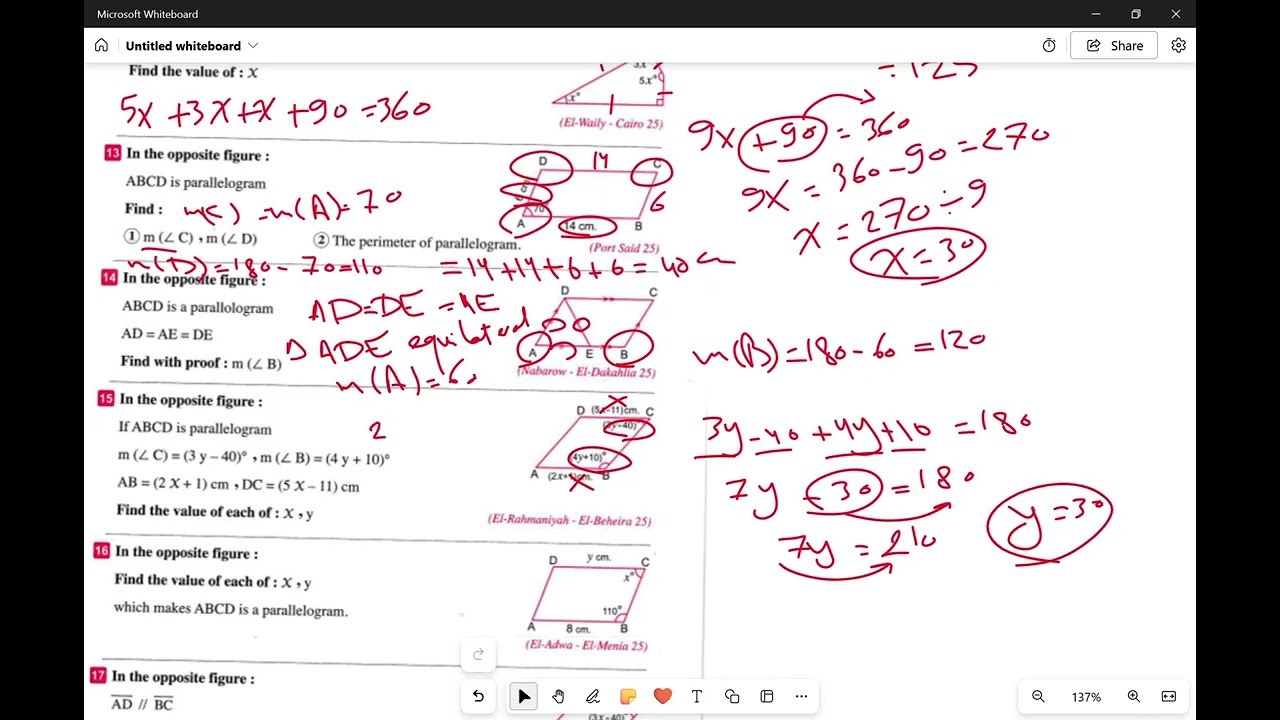 Microsoft Whiteboard
Untitled whiteboard
Share
Find the value of : X
5x°
x°
(El-Waily - Cairo 25)
5x +3x+x +90 =360
= 125
9x +90 = 360
9x = 360 - 90 = 270
x = 270 ÷ 9
x = 30
13 In the opposite figure :
ABCD is parallelogram
Find : m(C) = m(A) = 70
① m (∠ C) , m (∠ D) ② The perimeter of parallelogram.
D 14 C
6
70
A 14 cm. B
(Port Said 25)
m(D) = 180 - 70 = 110 = 14+14+6+6 = 40 cm
14 In the opposite figure :
ABCD is a parallologram
AD = AE = DE
Find with proof : m (∠ B)
AD = DE = AE
Δ ADE equilateral
m(A) = 60
D C
A E B
(Nabarow - El-Dakahlia 25)
m(B) = 180 - 60 = 120
15 In the opposite figure :
If ABCD is parallelogram
2
m (∠ C) = (3 y – 40)° , m (∠ B) = (4 y + 10)°
AB = (2 X + 1) cm , DC = (5 X – 11) cm
Find the value of each of : X , y
D (5x-11)cm. C
(3y-40)°
(4y+10)°
A B
(El-Rahmaniyah - El-Beheira 25)
3y - 40 + 4y + 10 = 180
7y - 30 = 180
7y = 210
y = 30
16 In the opposite figure :
Find the value of each of : X , y
which makes ABCD is a parallelogram.
D y cm. C
x°
110°
A 8 cm. B
(El-Adwa - El-Menia 25)
17 In the opposite figure :
AD // BC
(3x-40)°
137%